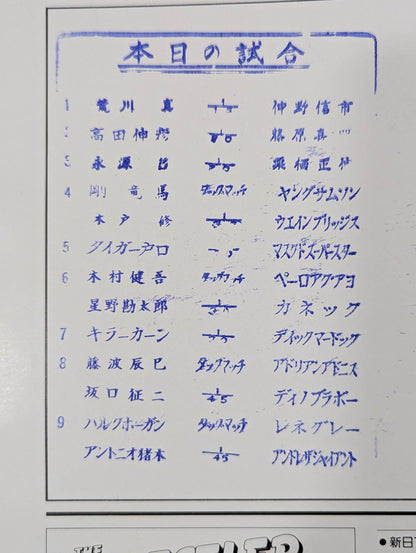 本日の試合
1 荒川 真 仲野信市
2 高田伸 藤原
3 永源 正伸
4 剛 竜馬 タッグマッチ ヤングサムソン
木戸 修 ウエインブリッジス
5 タイガー戸口 マスクドスーパースター
6 木村健吾 タッグマッチ ペーロアグアヨ
星野勘太郎 カネック
7 キラーカーン ディックマードック
8 藤波辰巳 タッグマッチ アドリアンアドニス
坂口征二 1/45 ディノブラボー
9 ハルクホーガン タッグマッチ レネグレー
アントニオ猪木 1/45 アンドレザジャイアント
THE
●新日